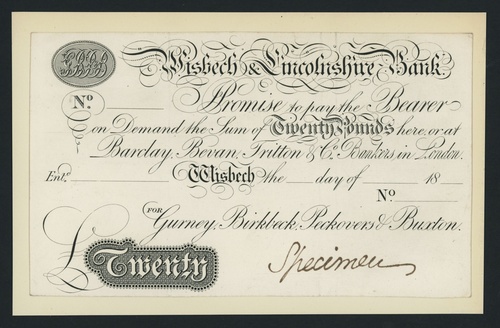 Wisbech & Lincolnshire Bank.
No. I Promise to pay the Bearer
on Demand the Sum of Twenty Pounds here, or at
Barclay, Bevan, Tritton & Co. Bankers, in London.
Entd. Wisbech the day of 18
No.
FOR Gurney, Birkbeck, Peckovers & Buxton.
£ Twenty
Specimen